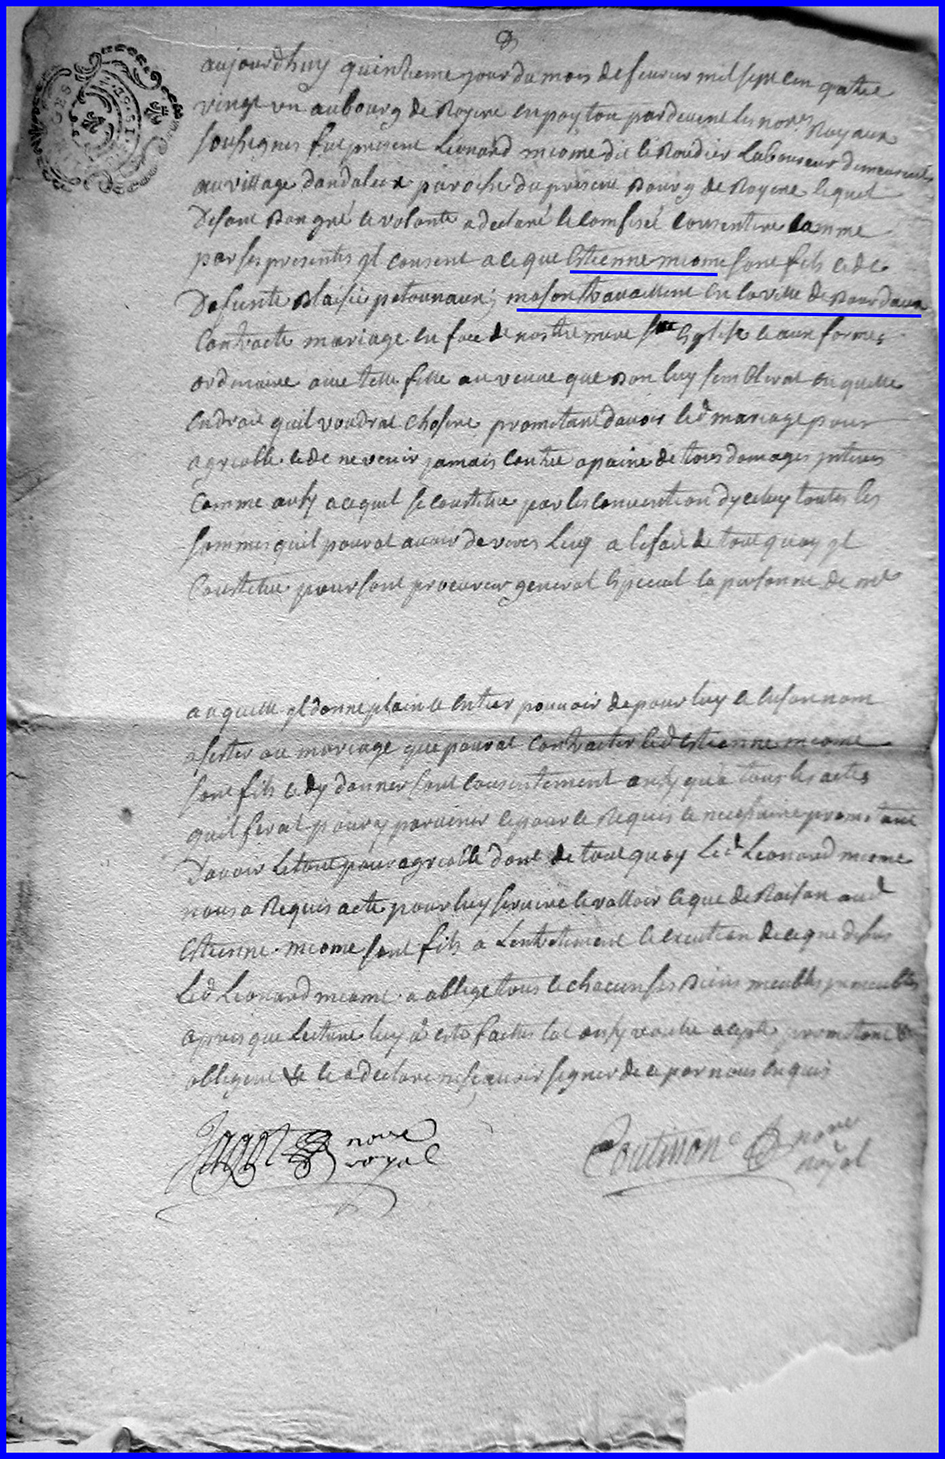 aujourd'huy quinzieme jour du mois de feuvrier mil sept cen quatre
vingt un au bourg de Royere en poytou pardevent les nores Royaux
souhsignes fut present Leonard miome dit le Roudier Laboureur demeurent
au village dandaleix paroisse du present Bourg de Royere lequel
De sont bon gré et volonte a declaré et comfisé consentire comme
par ses presentes yl consent a ce que Estienne miome sont fils et de
Defunte Blaisie petounaux; mason travaillent en la ville de Bourdaux
Contracte mariage en face de nostre mere ste Eglise et aux formes
ordinaire avec telle fille ou veuve que bon luy semblerat en quelle
endroit quil voudrat choisire, prometant davoir led mariage pour
agreable et de ne venir jamais contre a paine de tous domages interes
Comme ausy a ce quil se constitue par les convention dyceluy toutes les
sommes quil pourat avoir de vers luy a lefait de tout quoy yl
Constitue pour sont procureur general Special la personne de me
a uquelle yl donne plain et entier pouvoir de pour luy et en son nom
asister au mariage que pourat contracter led Estienne miome
sont fils et dy donner sont consentement ausy qu'a tous les actes
quil serat pour y parvenir et pour ce Requis et necessaire prometant
Davoir le tout pour agreable dont de tout quoy Led Leonard miome
nous a Requis acte pour luy servire et valloir ce que de Raison aud
Estienne miome sont fils a Lentretement et execution de ce que desus
Led Leonard miome a oblige tous et chacun ses Biens meubles ymeubles
apres que Lecture luy a este faitte lat ausy voulu acepte prometant &
obligent & et a declare ne scavoir signer de ce par nous enquis
nore
royal
Coutinon nore
royal